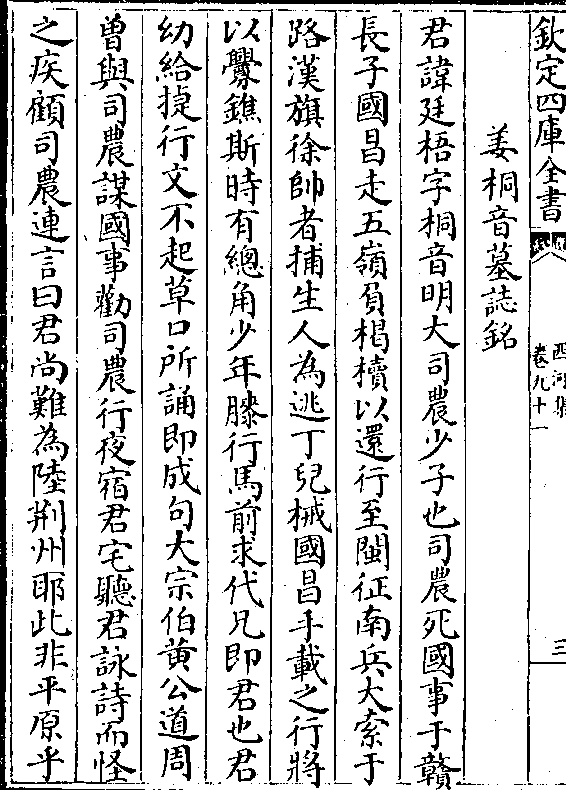 欽定四庫全書
西河集
卷九十一
三
姜桐音墓誌銘
君諱廷梧字桐音明大司農少子也司農死國事于贛
長子國昌走五嶺負楬櫝以還行至閩征南兵大索于
路漢旗徐帥者捕生人為逃丁兒械國昌手載之行將
以釁鐎斯時有總角少年膝行馬前求代兄即君也君
幼給㨗行文不起草口所誦即成句大宗伯黄公道周
曽與司農謀國事勸司農行夜宿君宅聽君詠詩而怪
之疾顧司農連言曰君尚難為陸荆州耶此非平原乎